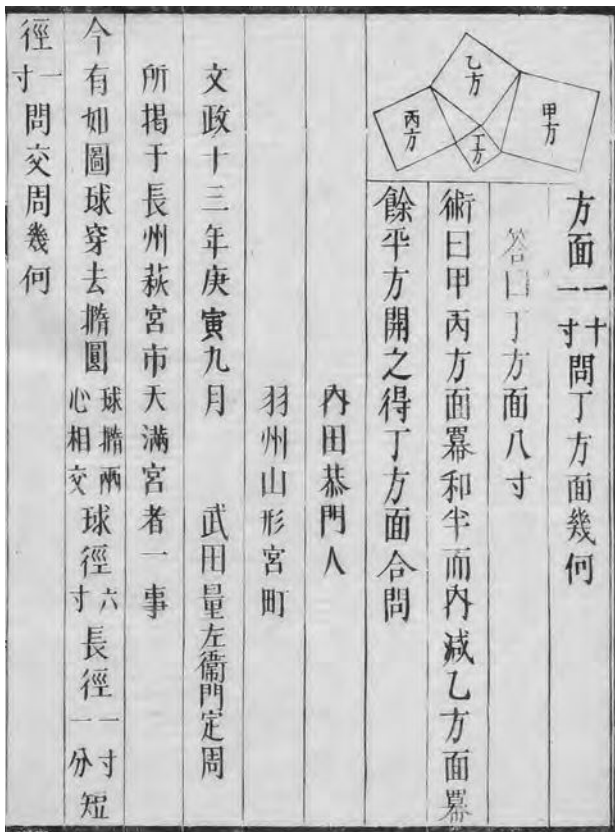 甲方
乙方
丙方
丁方
方面一十一寸問丁方面幾何
答曰丁方面八寸
術曰甲丙方面冪和半而內減乙方面冪
餘平方開之得丁方面合問
內田恭門人
羽州山形宮町
文政十三年庚寅九月　武田量左衞門定周
所揭于長州萩宮市天滿宮者一事
今有如圖球穿去橢圓球橢兩心相交球徑六寸長徑一寸一分短
徑一寸問交周幾何